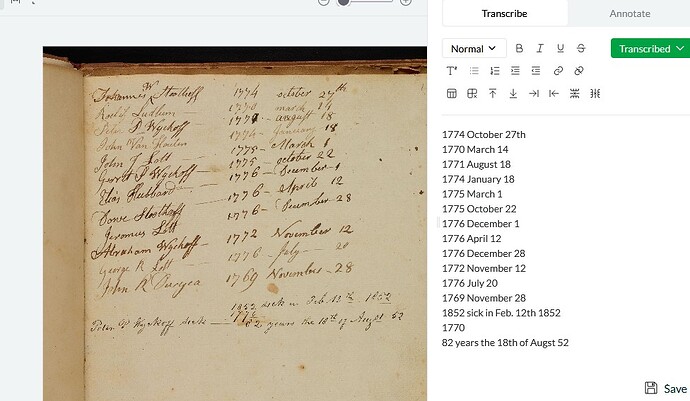 Transcribe
Annotate
Normal
B I U S
Transcribed
Johannes W Stoothoff 1774 october 27th
Roelof Ludlum 1770 march 14
Peter P Wyckoff 1771 august 18
John Van Houten 1774 January 18
John J Lott 1775 March 1
Gerrit P Wyckoff 1775 october 22
Elias Hubbard 1776 December 1
Dowe Stoothoff 1776 April 12
Jeromus Lott 1776 December 28
Abraham Wyckoff 1772 November 12
George R Lott 1776 July 20
John R Duryea 1769 November 28
1852 sick in Feb. 12th 1852
Peter P Wyckoff 1770
82 years the 18th of Augst 52
1774 October 27th
1770 March 14
1771 August 18
1774 January 18
1775 March 1
1775 October 22
1776 December 1
1776 April 12
1776 December 28
1772 November 12
1776 July 20
1769 November 28
1852 sick in Feb. 12th 1852
1770
82 years the 18th of Augst 52
Save